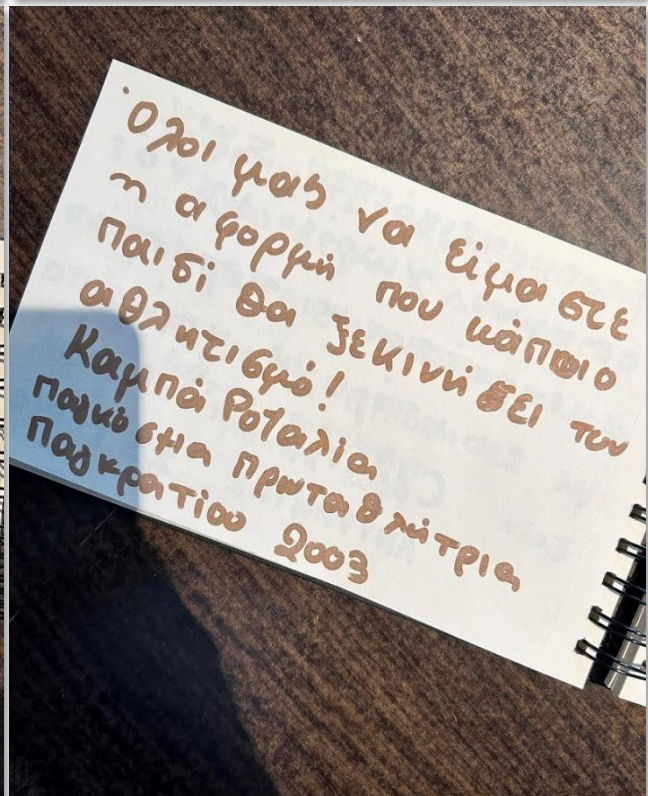 Όλοι μας να είμαστε
η αφορμή που κάποιο
παιδί θα ξεκινήσει τον
αθλητισμό!
Καμπά Ροζαλία
παγκόσμια πρωταθλήτρια
Παγκρατίου 2003